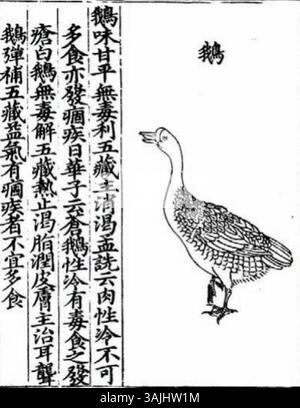 鵝
鵝味甘平無毒利五藏主消渴孟詵云肉性冷不可
多食亦發痼疾日華子云蒼鵝性冷有毒食之發
瘡白鵝無毒解五藏熱止渴脂潤皮膚主治耳聾
鵝彈補五藏益氣有痼疾者不宜多食
alamy
Image ID: 3AJHW1M
www.alamy.com